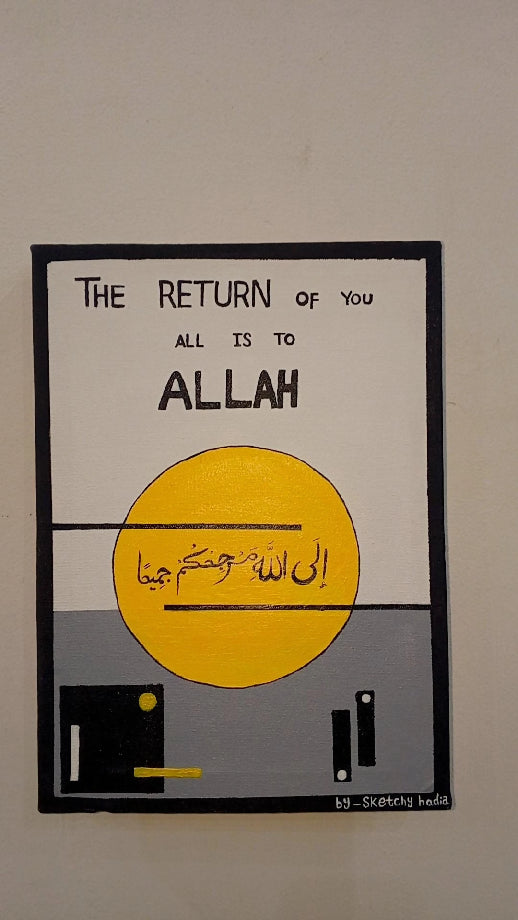 THE RETURN OF YOU
ALL IS TO
ALLAH
إلَى اللَّهِ مَرجِعُكُم جَمِيعًا
by-Sketchy hadia